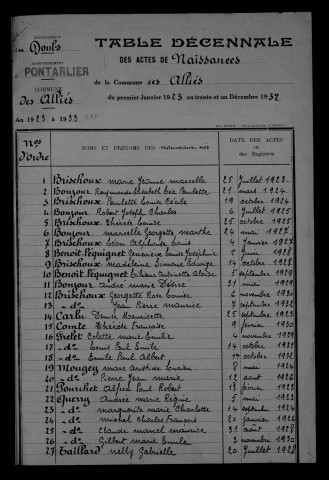 DÉPARTEMENT
du Doubs
TABLE DÉCENNALE
ARRONDISSEMENT
PONTARLIER
DES ACTES DE Naissances
de la Commune des Alliés
COMMUNE
des Alliés
du premier Janvier 1923 au trente et un Décembre 1932
An 1923 à 1933
Nos d'ordre NOMS ET PRÉNOMS DES nouveaux-nés DATE DES ACTES ou des Registres
1 Brischoux Marie Jeanne Marcelle 25 Juillet 1923
2 Bonjour Raymonde Elisabeth Léa Paulette 21 mars 1924
3 Brischoux Paulette Louise Cécile 19 octobre 1924
4 Bonjour Robert Joseph Charles 6 Juillet 1925
5 Brischoux Thérèse Louise 25 octobre 1925
6 Bonjour Marcelle Georgette Marthe 24 mai 1927
7 Brischoux Léon Alphonse Louis 4 Janvier 1927
8 Benoit Pequignet Geneviève Louise Joséphine 5 Juin 1928
9 Brischoux Madeleine Simone Edwige 14 octobre 1928
10 Benoit Pequignet Liliane Antinette 5 septembre 1929
11 Bonjour André Marie Désiré 31 mai 1929
12 Brischoux Georgette Rose Louise 6 novembre 1930
13 - do - Jean Pierre Maurice 7 septembre 1932
14 Carlu Denis Mauricette 25 septembre 1923
15 Comte Thérèse Françoise 9 février 1930
16 Frelet Colette Marie Emilie 4 novembre 1929
17 - do - Louis Paul Emile 14 octobre 1931
18 - do - Emile Paul Albert 17 octobre 1932
19 Mougey Marc Aristide Lucien 8 mai 1924
20 - do - Pierre Jean Marie 12 août 1926
21 Pourchet Alfred Paul Robert 13 février 1923
22 Querry Andrée Marie Régine 5 mai 1923
23 - do - Marguerite Marie Charlotte 14 septembre 1924
24 - do - Michel Charles François 20 janvier 1926
25 - do - Claude Marcel Maurice 31 août 1928
26 - do - Gilbert Marie Emile 3 novembre 1930
27 Taillard Nelly Gabrielle 20 Juillet 1928